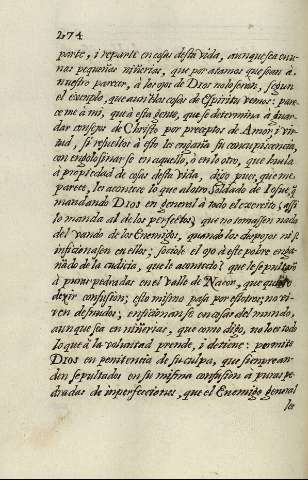 274
parte, i reparte en cosas desta vida, aunque sea en u-
nas pequeñas niñerias, que por atamos que sean à
nuestro parecer, à los ojos de Dios nolo seran, segun
el exemplo, que aun 
 cosas de Espiritu vemos: pare-
ceme à mi, què à esta gente, que se determina à guar-
dar consejos de Christo por preceptos de Amor, i vir-
tud, si resuelto à esto lo engaña su concupiscencia,
con engolosinarse en aquello, ò en lo otro, que huela
à propiedad de cosas desta vida, digo pues, que me
parece, le acontece lo que al otro Soldado de Iosue;
mandando Dios en general à todo el exercito; assi
lo manda al de los perfetos; que no tomasen nada
del vando de los Enemigos, quando los despojos ni se
inficionasen en ellos; fuesele el ojo à este pobre enga-
ñado de la cudicia, que le acontecio? que le sepultaron
à puras pedradas en el valle de Nacor, que quiere
dezir confusion; esto mismo pasa por esotros; no vi-
ven desnudos; enfrascanse en cosas del mundo,
aunque sea en niñerias, que como digo, no lo es todo
lo que à la voluntad prende, i detiene: permite
Dios en penitencia de su culpa, que siempre an-
den sepultados en su misma confusion à puras pe-
dradas de imperfecciones, que el Enemigo general
les